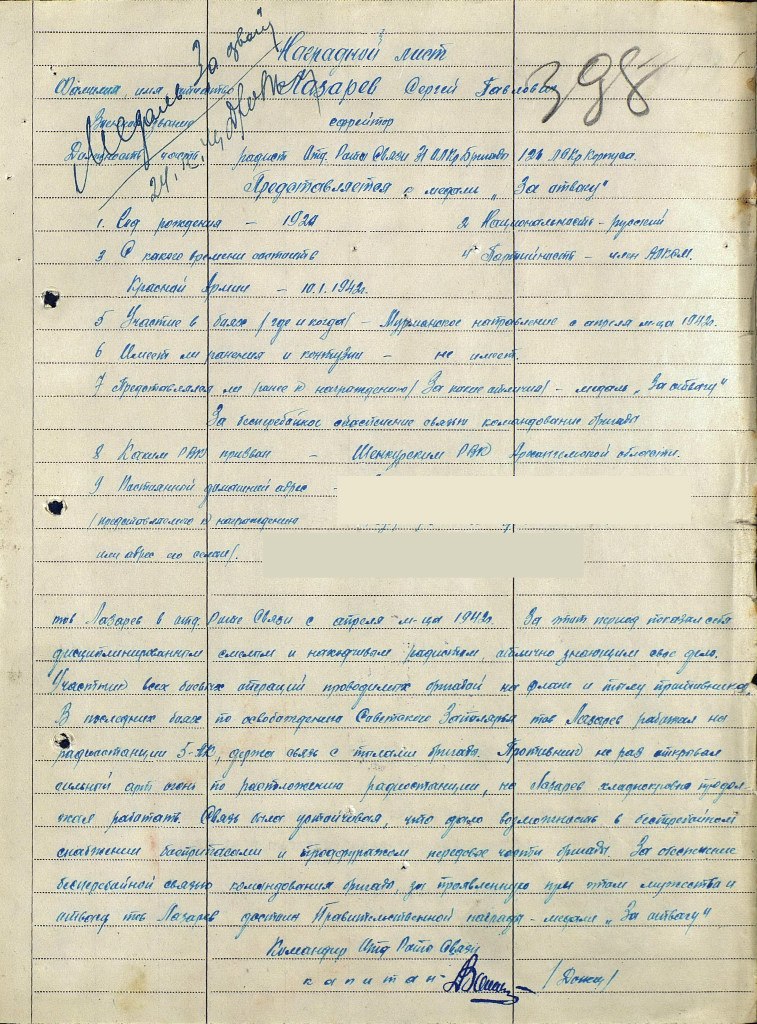 Наградной лист
398
Медаль За
Фамилия, имя, отчество Лазарев Сергей Павлович
Военное звание ефрейтор
Должность, часть радист Отд. Роты Связи 31 ОЛКр Бригады 126 ЛКр Корпуса.
Представляется к медали „За отвагу"
1. Год рождения –
2 Национальность – русский
3 С какого времени состоит в
4 Партийность – член ВЛКСМ.
Красной Армии – 10.1.1942г.
5 Участие в боях (где и когда) – Мурманское направление с апреля м-ца 1942г.
6 Имеет ли ранения и контузии – не имеет.
7 Представлялся ли (ранее к награждению) За какие отличия) – медаль „За отвагу"
За бесперебойное обеспечение связью командование бригады
8 Каким РВК призван – Шенкурским РВК Архангельской области.
9 Постоянной домашней адрес –
(представляемого к награждению
или адрес его семьи).
тов Лазарев в отд. Роте Связи с апреля м-ца 1942г. За этот период показал себя
дисциплинированным смелым и находчивым радистом, отлично знающим свое дело.
Участник всех боевых операций проводимых бригадой на фланг и тылу противника.
В последних боях по освобождению Советского Заполярья тов Лазарев работал на
радиостанции 5-АК, держа связь с тылами бригады. Противник не раз открывал
сильной арт огонь по расположению радиостанции, но Лазарев хладнокровно продол-
жал работать. Связь была устойчивая, что дало возможность в бесперебойном
снабжении боеприпасами и продфуражем передовые части бригады. За обеспечение
бесперебойной связью командования бригады, за проявленную при этом мужества и
отвагу тов Лазарев достоин Правительственной награды – медали „За отвагу"
Командир Отд Роты Связи
капитан –